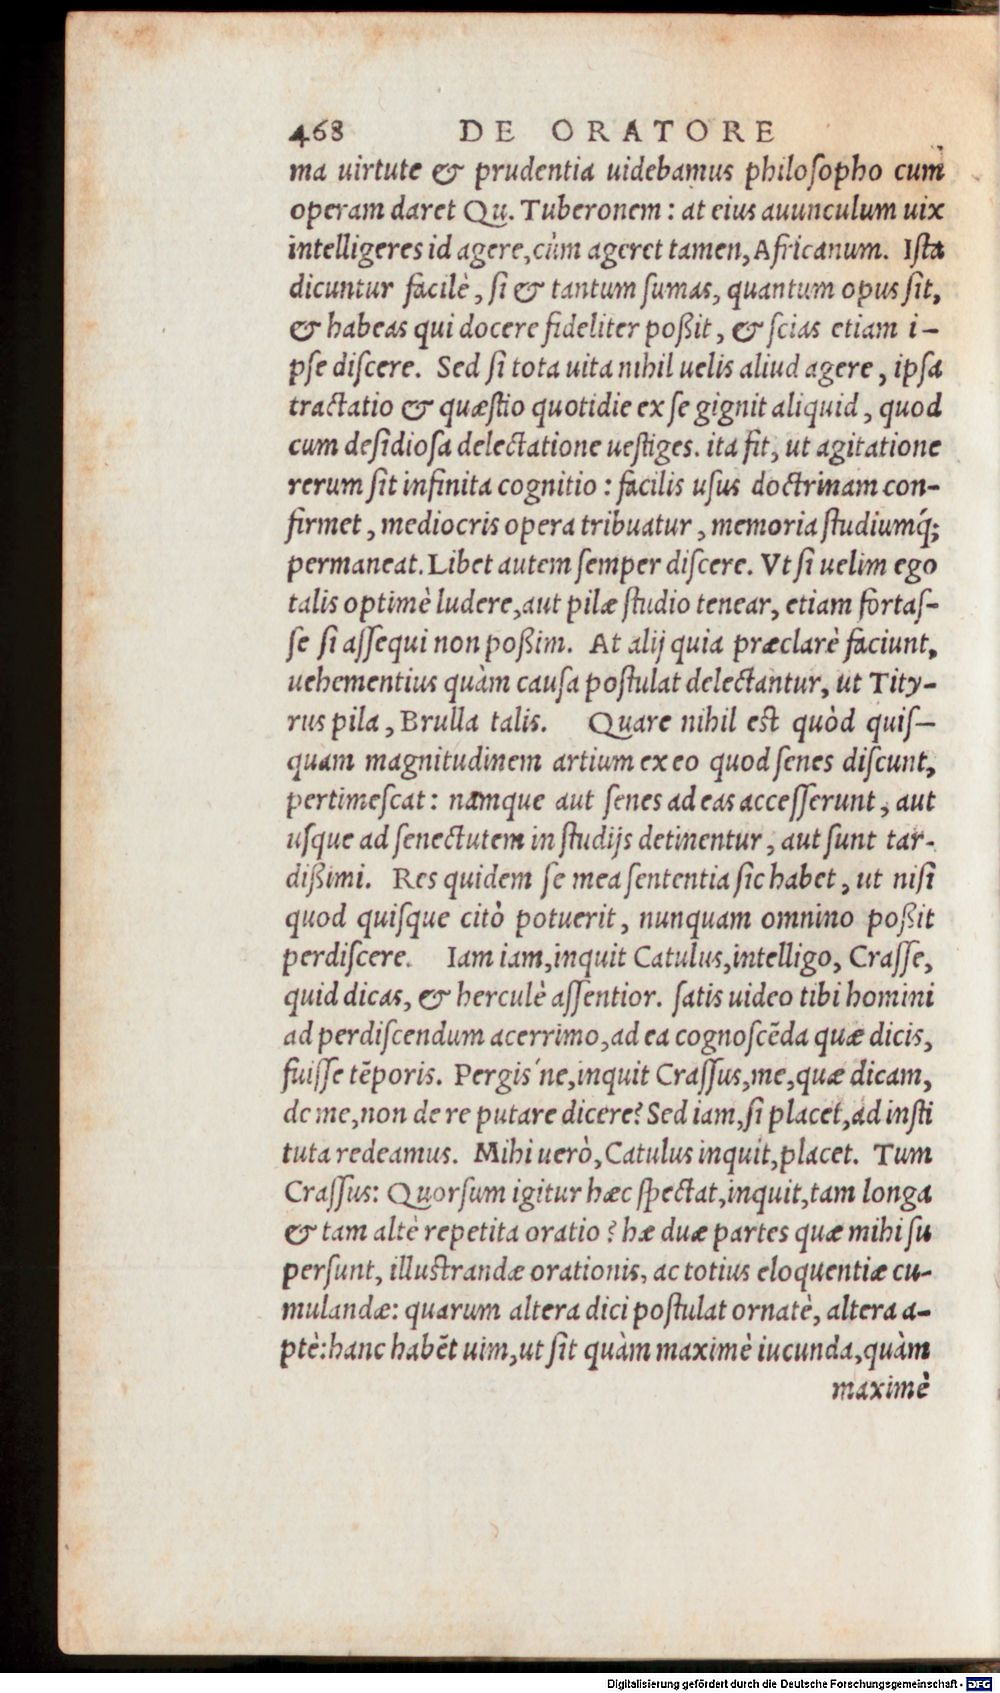 468 DE ORATORE
ma uirtute & prudentia uidebamus philosopho cum
operam daret Qu. Tuberonem : at eius auunculum uix
intelligeres id agere, cùm ageret tamen, Africanum. Ista
dicuntur facilè, si & tantum sumas, quantum opus sit,
& habeas qui docere fideliter poßit, & scias etiam i-
pse discere. Sed si tota uita nihil uelis aliud agere, ipsa
tractatio & quæstio quotidie ex se gignit aliquid, quod
cum desidiosa delectatione uestiges. ita fit, ut agitatione
rerum sit infinita cognitio : facilis usus doctrinam con-
firmet, mediocris opera tribuatur, memoria studiumq́;
permaneat. Libet autem semper discere. Vt si uelim ego
talis optimè ludere, aut pilæ studio tenear, etiam fortas-
se si assequi non poßim. At alij quia præclarè faciunt,
uehementius quàm causa postulat delectantur, ut Tity-
rus pila, Brulla talis. Quare nihil est quòd quis-
quam magnitudinem artium ex eo quod senes discunt,
pertimescat : namque aut senes ad eas accesserunt, aut
usque ad senectutem in studijs detinentur, aut sunt tar-
dißimi. Res quidem se mea sententia sic habet, ut nisi
quod quisque citò potuerit, nunquam omnino poßit
perdiscere. Iam iam, inquit Catulus, intelligo, Crasse,
quid dicas, & herculè assentior. satis uideo tibi homini
ad perdiscendum acerrimo, ad ea cognoscẽda quæ dicis,
fuisse tẽporis. Pergis´ne, inquit Crassus, me, quæ dicam,
de me, non de re putare dicere? Sed iam, si placet, ad insti
tuta redeamus. Mihi uerò, Catulus inquit, placet. Tum
Crassus: Quorsum igitur hæc spectat, inquit, tam longa
& tam altè repetita oratio ? hæ duæ partes quæ mihi su
persunt, illustrandæ orationis, ac totius eloquentiæ cu-
mulandæ: quarum altera dici postulat ornatè, altera a-
ptè: hanc habẽt uim, ut sit quàm maximè iucunda, quàm
maximè
Digitalisierung gefördert durch die Deutsche Forschungsgemeinschaft - DFG